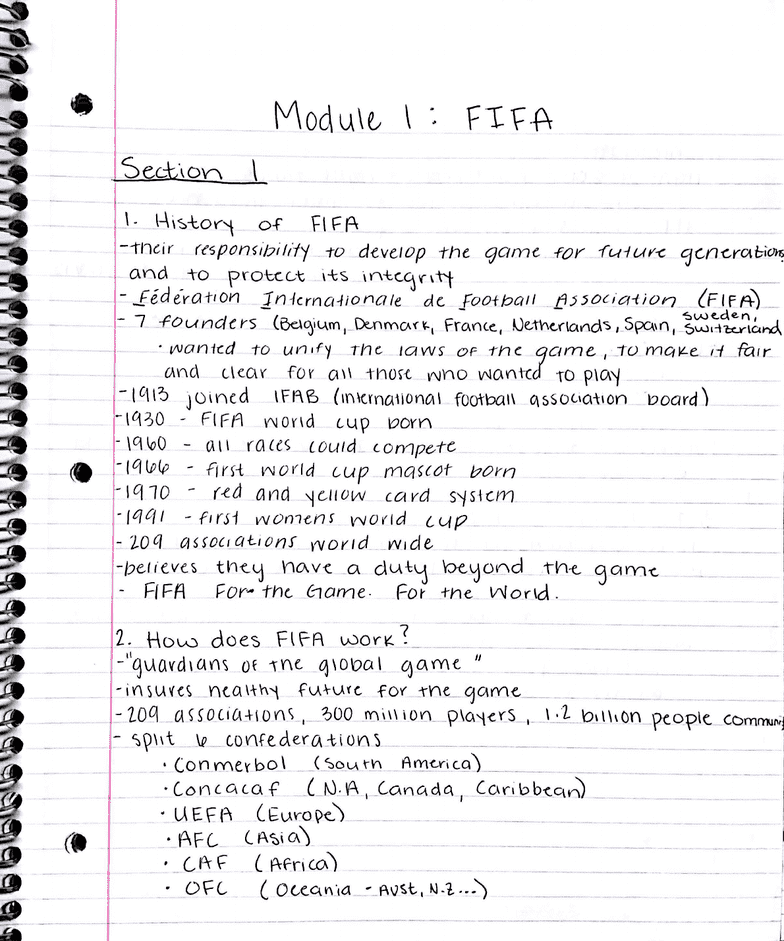 Module 1: FIFA
Section 1
1. History of FIFA
-their responsibility to develop the game for future generations
and to protect its integrity
- Fédération Internationale de Football Association (FIFA)
- 7 founders (Belgium, Denmark, France, Netherlands, Spain, Sweden, Switzerland
• wanted to unify the laws of the game, to make it fair
and clear for all those who wanted to play
-1913 joined IFAB (international football association board)
-1930 - FIFA world cup born
-1960 - all races could compete
-1966 - first world cup mascot born
-1970 - red and yellow card system
-1991 - first womens world cup
- 209 associations world wide
-believes they have a duty beyond the game
- FIFA For the Game. For the World.
2. How does FIFA work?
-"guardians of the global game"
-insures healthy future for the game
-209 associations, 300 million players, 1.2 billion people communi
- split 6 confederations
• Conmerbol (South America)
• Concacaf (N.A, Canada, Caribbean)
• UEFA (Europe)
• AFC (Asia)
• CAF (Africa)
• OFC (Oceania - Aust, N.Z...)